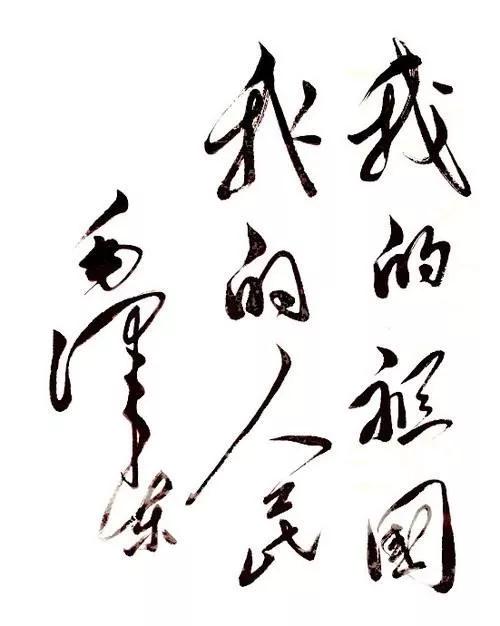 我的祖國
我的人民
毛泽东